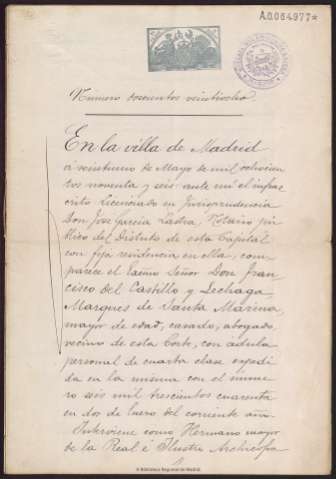 A.0.054977*
Número doscientos veintiocho
En la villa de Madrid
á veintiuno de Mayo de mil ochocien
tos noventa y seis ante mí el infras
crito Licenciado en Jurisprudencia
Don José García Lastra, Notario pú
blico del Distrito de esta Capital
con fija residencia en ella, com-
parece el Excmo Señor Don Fran
cisco del Castillo y Lechaga
Marques de Santa Marina,
mayor de edad, casado, abogado,
vecino de esta Corte, con cédula
personal de cuarta clase expedi
da en la misma con el núme
ro seis mil trescientos cuarenta
en dos de Enero del corriente año
Interviene como Hermano mayor
de la Real é Ilustre Archicofra
© Biblioteca Regional de Madrid